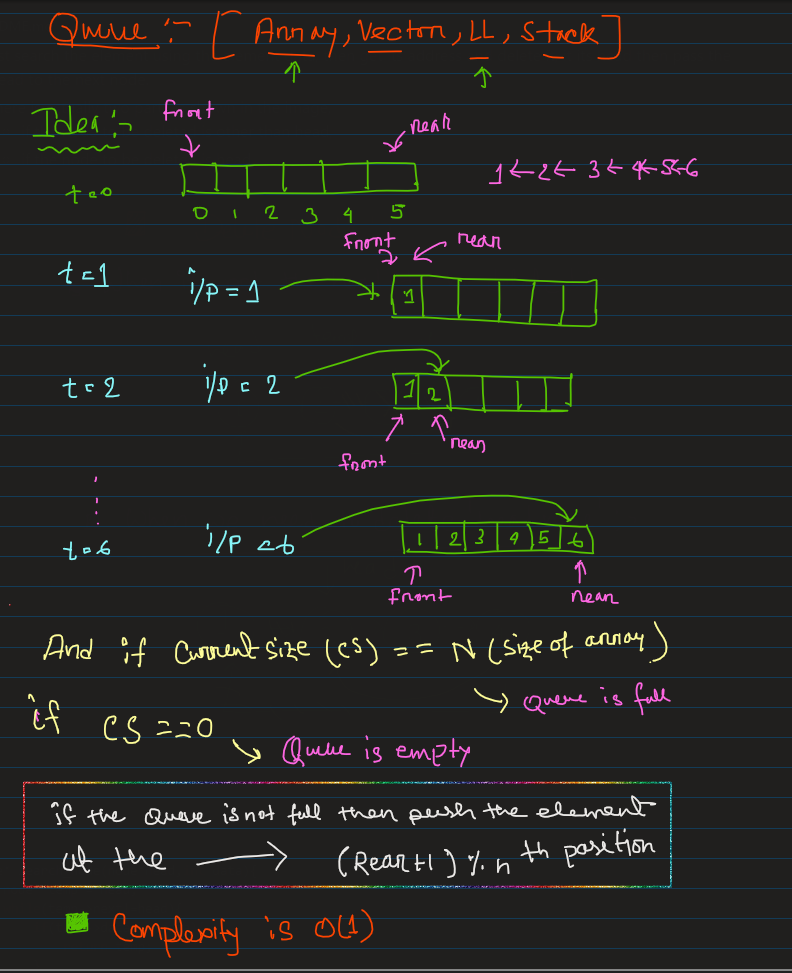 Queue :- [ Array, Vector, LL, Stack ]
Idea :-
front
rear
t=0
0 1 2 3 4 5
1 ← 2 ← 3 ← 4 ← 5 ← 6
front rear
t=1 i/p = 1
1
t=2 i/p = 2
1 2
front rear
t=6 i/p = 6
1 2 3 4 5 6
front rear
And if Current size (CS) == N (size of array)
Queue is full
if CS ==0
Queue is empty
if the Queue is not full then push the element
at the → (Rear+1) % n th position
Complexity is O(1)